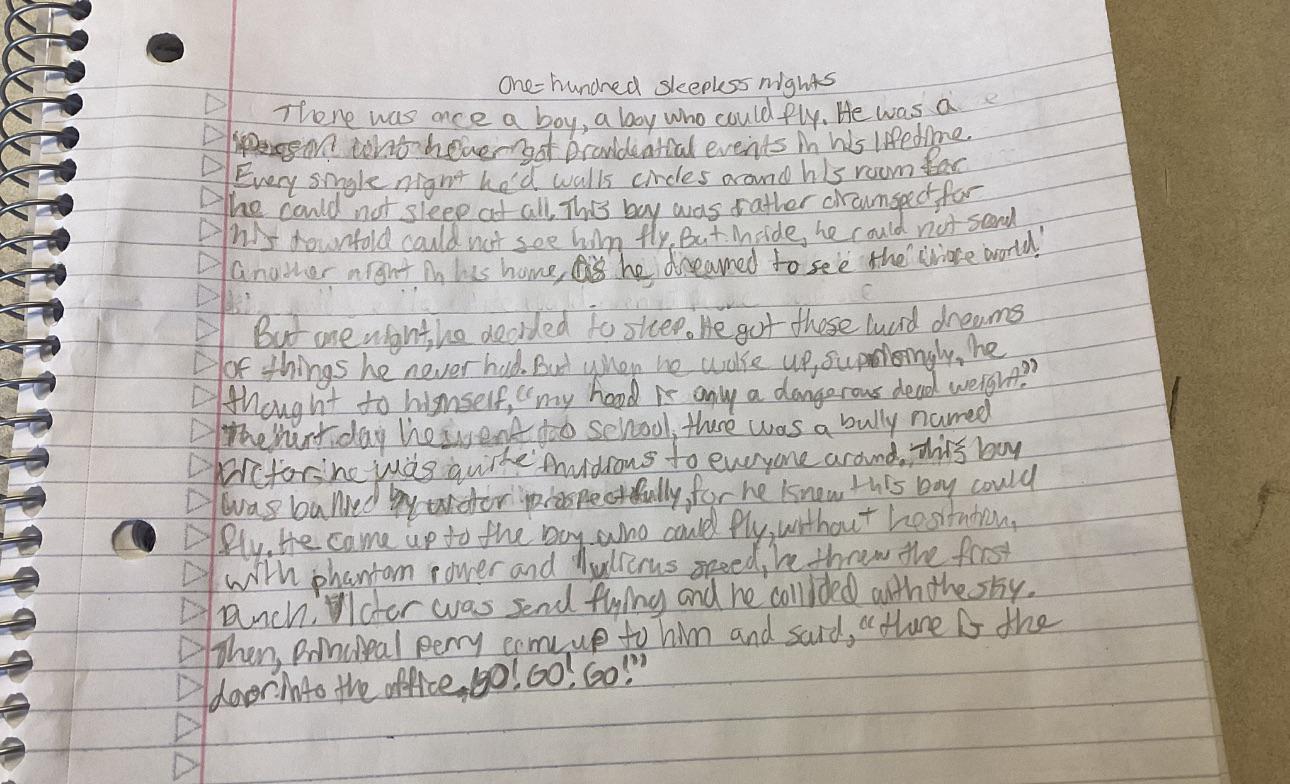 One-hundred sleepless nights
There was once a boy, a boy who could fly. He was a
person who never got providential events in his lifetime.
Every single night he'd walls circles around his room for
he could not sleep at all. This boy was rather circumspect, for
his townfold could not see him fly. But inside, he could not send
another night in his home, as he dreamed to see the whole world!
But one night, he decided to sleep. He got these lucid dreams
of things he never had. But when he woke up, suprisingly, he
thought to himself, "my head is only a dangerous dead weight."
The next day he went too school, there was a bully named
Victor. he was quite to everyone around. This boy
was bullied by victor for he knew this boy could
fly. He came up to the boy who could fly, without hesitation,
with phantom power and speed, he threw the first
punch. Victor was send flying and he collided with the sky.
Then, principal perry come up to him and said, "there is the
door into the office, GO! GO! GO!"